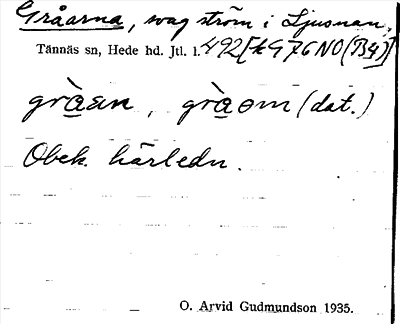 Gråarna, svag ström i Ljusnan,
Tännäs sn, Hede hd. Jtl. l. 492 [*G 76 NO (B4)]
gràan, gràom (dat.)
Obek. härledn.
O. Arvid Gudmundson 1935.